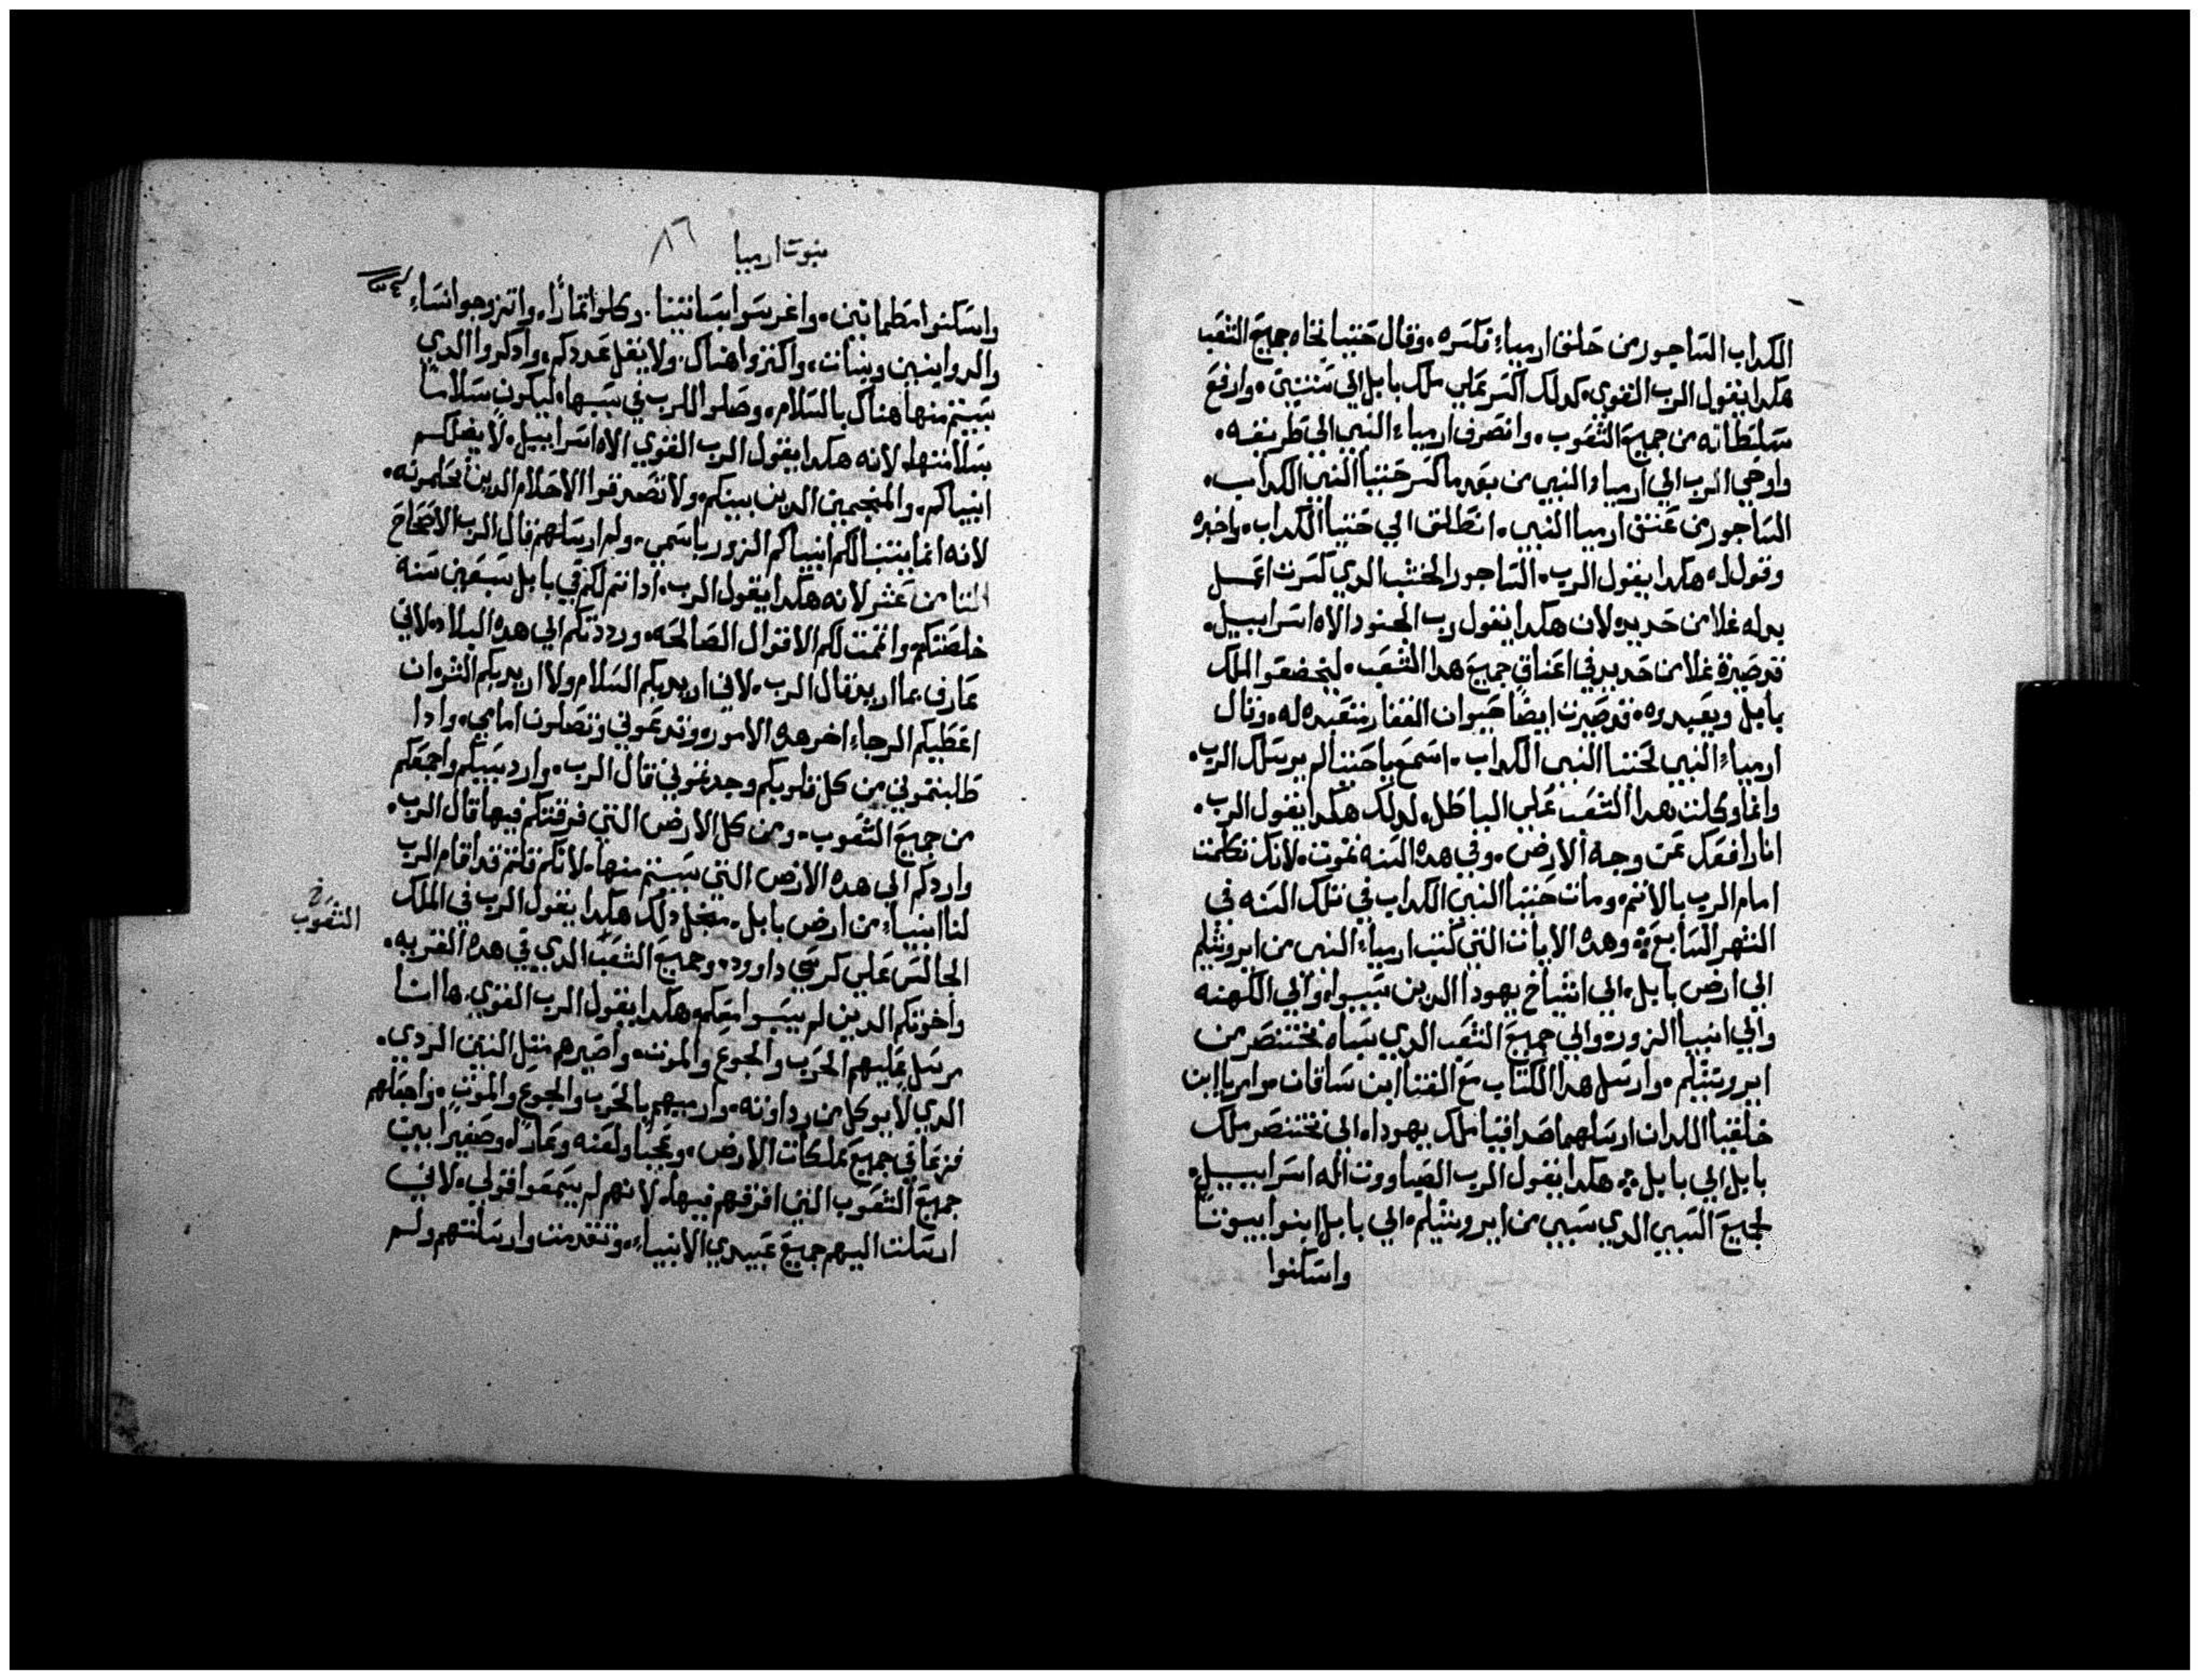 الكداب الساجور من حلق ارمياء فكسره. وقال حننيا تجاه جميع الشعب
هكدا يقول الرب القوي كدلك اكسر عملي ملك بابل الي سنتين. وارفع
سلطانه من جميع الشعوب. وانصرف ارمياء النبي الي طريقه.
واوحي الرب الي ارمياء النبي من بعد ما كسر حننيا النبي الكداب.
الساجور من عنق ارميا النبي. انطلق الي حننيا الكداب. واخبره
وقول له هكدا يقول الرب. الساجور الخشب الدي كسرت اعمل
بدله غلا من حديد لان هكدا يقول رب الجنود الاه اسراييل.
قد صيرة غلا من حديد في اعناق جميع هدا الشعب. ليخضعوا لملك
بابل ويعبدوه. قد صيرت ايضا حيوان القفار متعبده له. وقال
ارمياء النبي لحننيا النبي الكداب. اسمع يا حننيا لم يرسلك الرب.
وانما وكلت بهدا الشعب علي الباطل. لدلك هكدا يقول الرب.
انا رافعك عن وجه الارض. وفي هده السنه تموت. لانك تكلمت
امام الرب بالاثم. ومات حننيا النبي الكداب في تلك السنه في
الشهر السابع. وهده الايات التي كتب ارمياء النبي من ايروشليم
الي ارض بابل. الي اشياخ يهودا الدين سبيوا. والي الكهنه
والي انبيا الزور. والي جميع الشعب الدي سباه بختنصر من
ايروشليم. وارسل هدا الكتاب مع الفتا ابن ساقان موابريا ابن
خلقيا اللدان ارسلهما صداقيا ملك يهودا. الي بختنصر ملك
بابل الي بابل. هكدا يقول الرب الصباووت اله اسراييل.
لجميع السبي الدي سبي من ايروشليم. الي بابل ابنوا بيوتا
واسكنوا
نبوت ارميا ٨٦
واسكنوا مطمانين. واغرسوا بساتينا. وكلوا ثمارا. واتزوجوا نساء
والدوا بنين وبنات. واكثروا هناك. ولا يقل عددكم. وادكروا الدي
سبيتم منها هناك بالسلام. وصلوا للرب في سببها. ليكون سلاما
بسلامتها. لانه هكدا يقول الرب القوي الاه اسراييل. لا يضلكم
انبياكم. والمنجمين الدين بينكم. ولا تصدقوا الاحلام الدين تحلمونه.
لانه انما يتنبا لكم انبياكم الزور باسمي. ولم ارسلهم قال الرب الاصحاح
التامن عشر لانه هكدا يقول الرب. ادا تم لكم في بابل سبعين سنه
خلصتكم. واتممت لكم الاقوال الصالحه. ورددتكم الي هده البلاد. لاني
عارف بما اريد قال الرب. لاني اريد بكم السلام ولا اريد بكم الشر وان
اعطيكم الرجاء اخر هده الامور. وتدعوني وتصلون امامي. وادا
طلبتموني من كل قلوبكم وجدتموني قال الرب. وارد سبيكم واجمعكم
من جميع الشعوب. ومن كل الارض التي فرقتكم فيها قال الرب.
واردكم الي هده الارض التي سبيتم منها. لانكم قلتم قد اقام الرب
لنا انبياء من ارض بابل. من اجل دلك هكدا يقول الرب في الملك
الجالس علي كرسي داوود. وجميع الشعب الدي في هده القريه.
خ
الشعوب
واخوتكم الدين لم يسبوا معكم. هكدا يقول الرب القوي. ها انا
مرسل عليهم الحرب والجوع والموت. واصيرهم مثل التين الردي.
الدي لا يوكل من رداوته. وارميهم بالحرب والجوع والموت. واجعلهم
فزعا في جميع مملكات الارض. وعجبا ولعنه وعارا. وصفيرا بين
جميع الشعوب التي افرقهم فيها. لانهم لم يسمعوا قولي. لاني
ارسلت اليهم جميع عبيدي الانبياء. وتقدمت وارسلتهم ولم